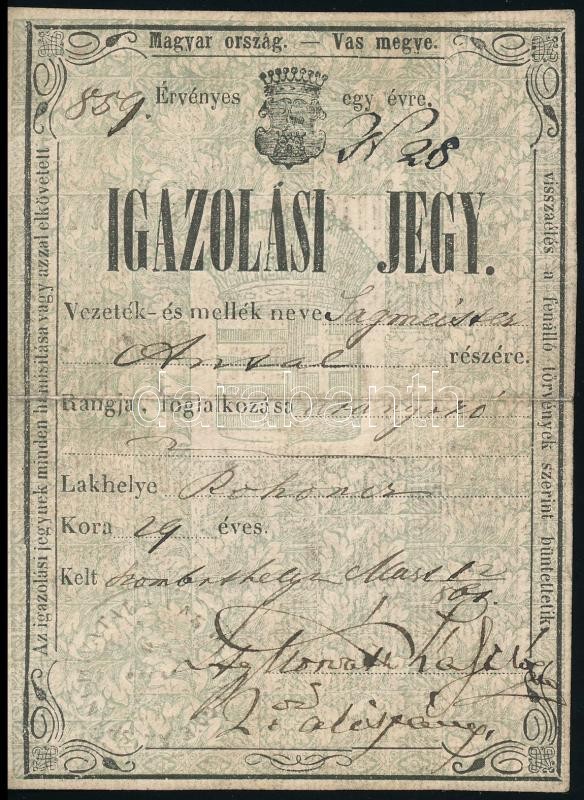 Magyar ország. — Vas megye.
859. Érvényes egy évre.
N 28
IGAZOLÁSI JEGY.
Vezeték- és mellék neve Sagmeister
Antal részére.
Rangja, foglalkozása aranyozó
Lakhelye Rohoncz
Kora 29 éves.
Kelt Szombathelyen Mart 12
861.
Horváth
alispány.
Az igazolási jegynek minden hamisítása vagy azzal elkövetett
visszaélés a fenálló törvények szerint büntettetik.
darabanth